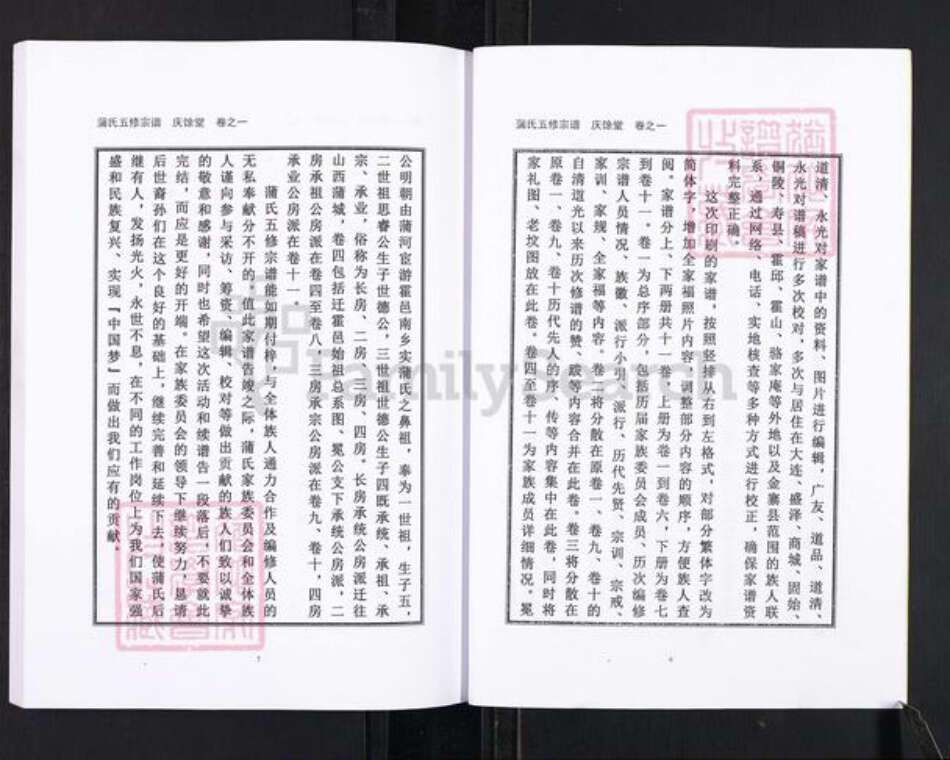 蒲氏五修宗谱 庆馀堂 卷之一
道清、永光对家谱中的资料、图片进行编辑，广友、道品、道清、
永光对谱稿进行多次校对，多次与居住在大连、盛泽、商城、固始、
铜陵、寿县、霍邱、霍山、骆家庵等外地以及金寨县范围的族人联
系，通过网络、电话、实地核查等多种方式进行校正，确保家谱资
料完整正确。
这次印刷的家谱，按照竖排从右到左格式，对部分繁体字改为
简体字，增加全家福照片内容，调整部分内容的顺序，方便族人查
阅。家谱分上、下两册共十一卷，上册为卷一到卷六，下册为卷七
到卷十一。卷一为总序部分，包括历届家族委员会成员、历次编修
宗谱人员情况、族徽、派行小引、派行、历代先贤、宗训、宗戒、
家训、家规、全家福等内容。卷二将分散在原卷一、卷九、卷十的
自清道光以来历次修谱的赞、跋等内容合并在此卷。卷三将分散在
原卷一、卷九、卷十历代先人的序、传等内容集中在此卷，同时将
家礼图、老坟图放在此卷。卷四至卷十一为家族成员详细情况。冕
6
蒲氏五修宗谱 庆馀堂 卷之一
公明朝由蒲河宦游霍邑南乡实蒲氏之鼻祖，奉为一世祖，生子五，
二世祖思睿公生子世德公，三世祖世德公生子四既承统、承祖、承
宗、承业，俗称为长房、二房、三房、四房。长房承统公房派迁往
山西蒲城，卷四包括迁霍邑始祖总系图、冕公支下承统公房派，二
房承祖公房派在卷四至卷八，三房承宗公房派在卷九、卷十，四房
承业公房派在卷十一。
蒲氏五修宗谱能如期付梓，与全体族人通力合作及编修人员的
无私奉献分不开的，值此家谱告竣之际，蒲氏家族委员会和全体族
人谨向参与采访、筹资、编辑、校对等做出贡献的族人们致以诚挚
的敬意和感谢，同时也希望这次活动和续谱告一段落后，不要就此
完结，而应是更好的开端。在家族委员会的领导下继续努力，恳请
后世裔孙们在这个良好的基础上，继续完善和延续下去，使蒲氏后
继有人，发扬光火，永世不息，在不同的工作岗位上为我们国家强
盛和民族复兴、实现『中国梦』而做出我们应有的贡献。
7
FamilySearch